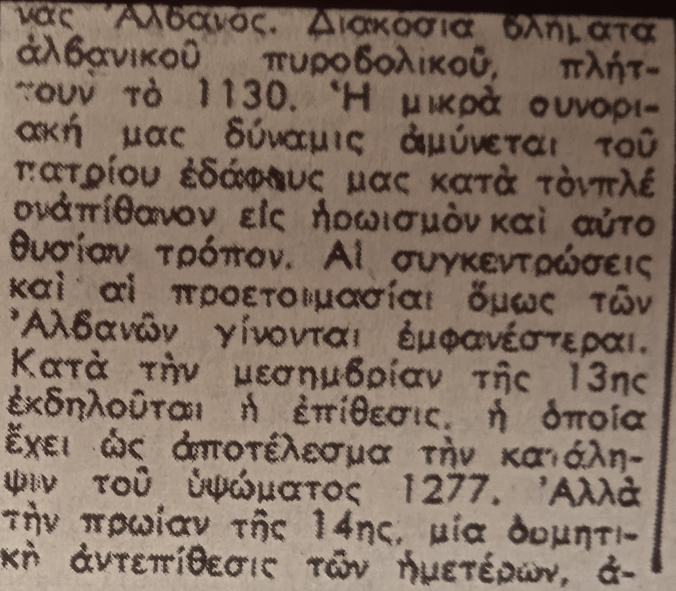 νας Ἀλβανός. Διακόσια βλήματα
ἀλβανικοῦ πυροβολικοῦ, πλήτ-
τουν τὸ 1130. Ἡ μικρὰ συνορι-
ακή μας δύναμις ἀμύνεται τοῦ
πατρίου ἐδάφους μας κατὰ τὸνπλέ
ονἀπίθανον εἰς ἡρωισμὸν καὶ αὐτο
θυσίαν τρόπον. Αἱ συγκεντρώσεις
καὶ αἱ προετοιμασίαι ὅμως τῶν
Ἀλβανῶν γίνονται ἐμφανέστεραι.
Κατὰ τὴν μεσημβρίαν τῆς 13ης
ἐκδηλοῦται ἡ ἐπίθεσις, ἡ ὁποία
ἔχει ὡς ἀποτέλεσμα τὴν κατάλη-
ψιν τοῦ ὑψώματος 1277. Ἀλλὰ
τὴν πρωίαν τῆς 14ης, μία ὁρμητι-
κὴ ἀντεπίθεσις τῶν ἡμετέρων, ἀ-